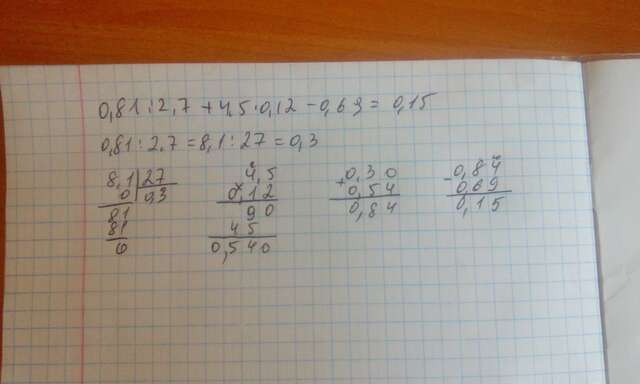 0,81 : 2,7 + 4,5 · 0,12 - 0,69 = 0,15
0,81 : 2,7 = 8,1 : 27 = 0,3
8,1 | 27
0 | 0,3
81
81
0
4,5
× 0,12
90
45
0,540
+ 0,30
0,54
0,84
- 0,84
0,69
0,15